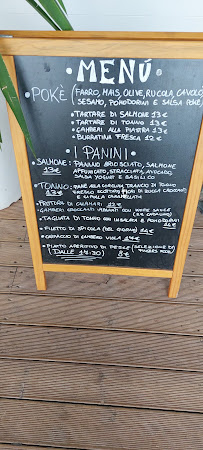 MENÚ
• POKÈ • (FARRO, MAIS, OLIVE, RUCOLA, CAVOLO,
SESAMO, POMODORINI E SALSA POKÈ)
• TARTARE DI SALMONE 13€
• TARTARE DI TONNO 13€
• GAMBERI ALLA PIASTRA 13€
• BURRATINA FRESCA 12€
• I PANINI •
SALMONE: PANINO BRIOSCIATO, SALMONE
13€ AFFUMICATO, STRACCIATA, AVOCADO,
SALSA YOGURT E BASILICO
TONNO: PANE ALLA TRANCIO DI TONNO
13€ FRESCO FIORI DI ZUCCA
E CIPOLLA CARAMELLATA
• FRITTURA DI CALAMARI
• GAMBERI CROCCANTI CON SALSA
• TAGLIATA DI TONNO CON INSALATA E POMODORINI
• FILETTO DI SPIGOLA 14€
• CARPACCIO DI GAMBERO VIOLA
• PIATTO APERITIVO DI PESCE (SELEZIONE DI
(DALLE 17:30) 8€